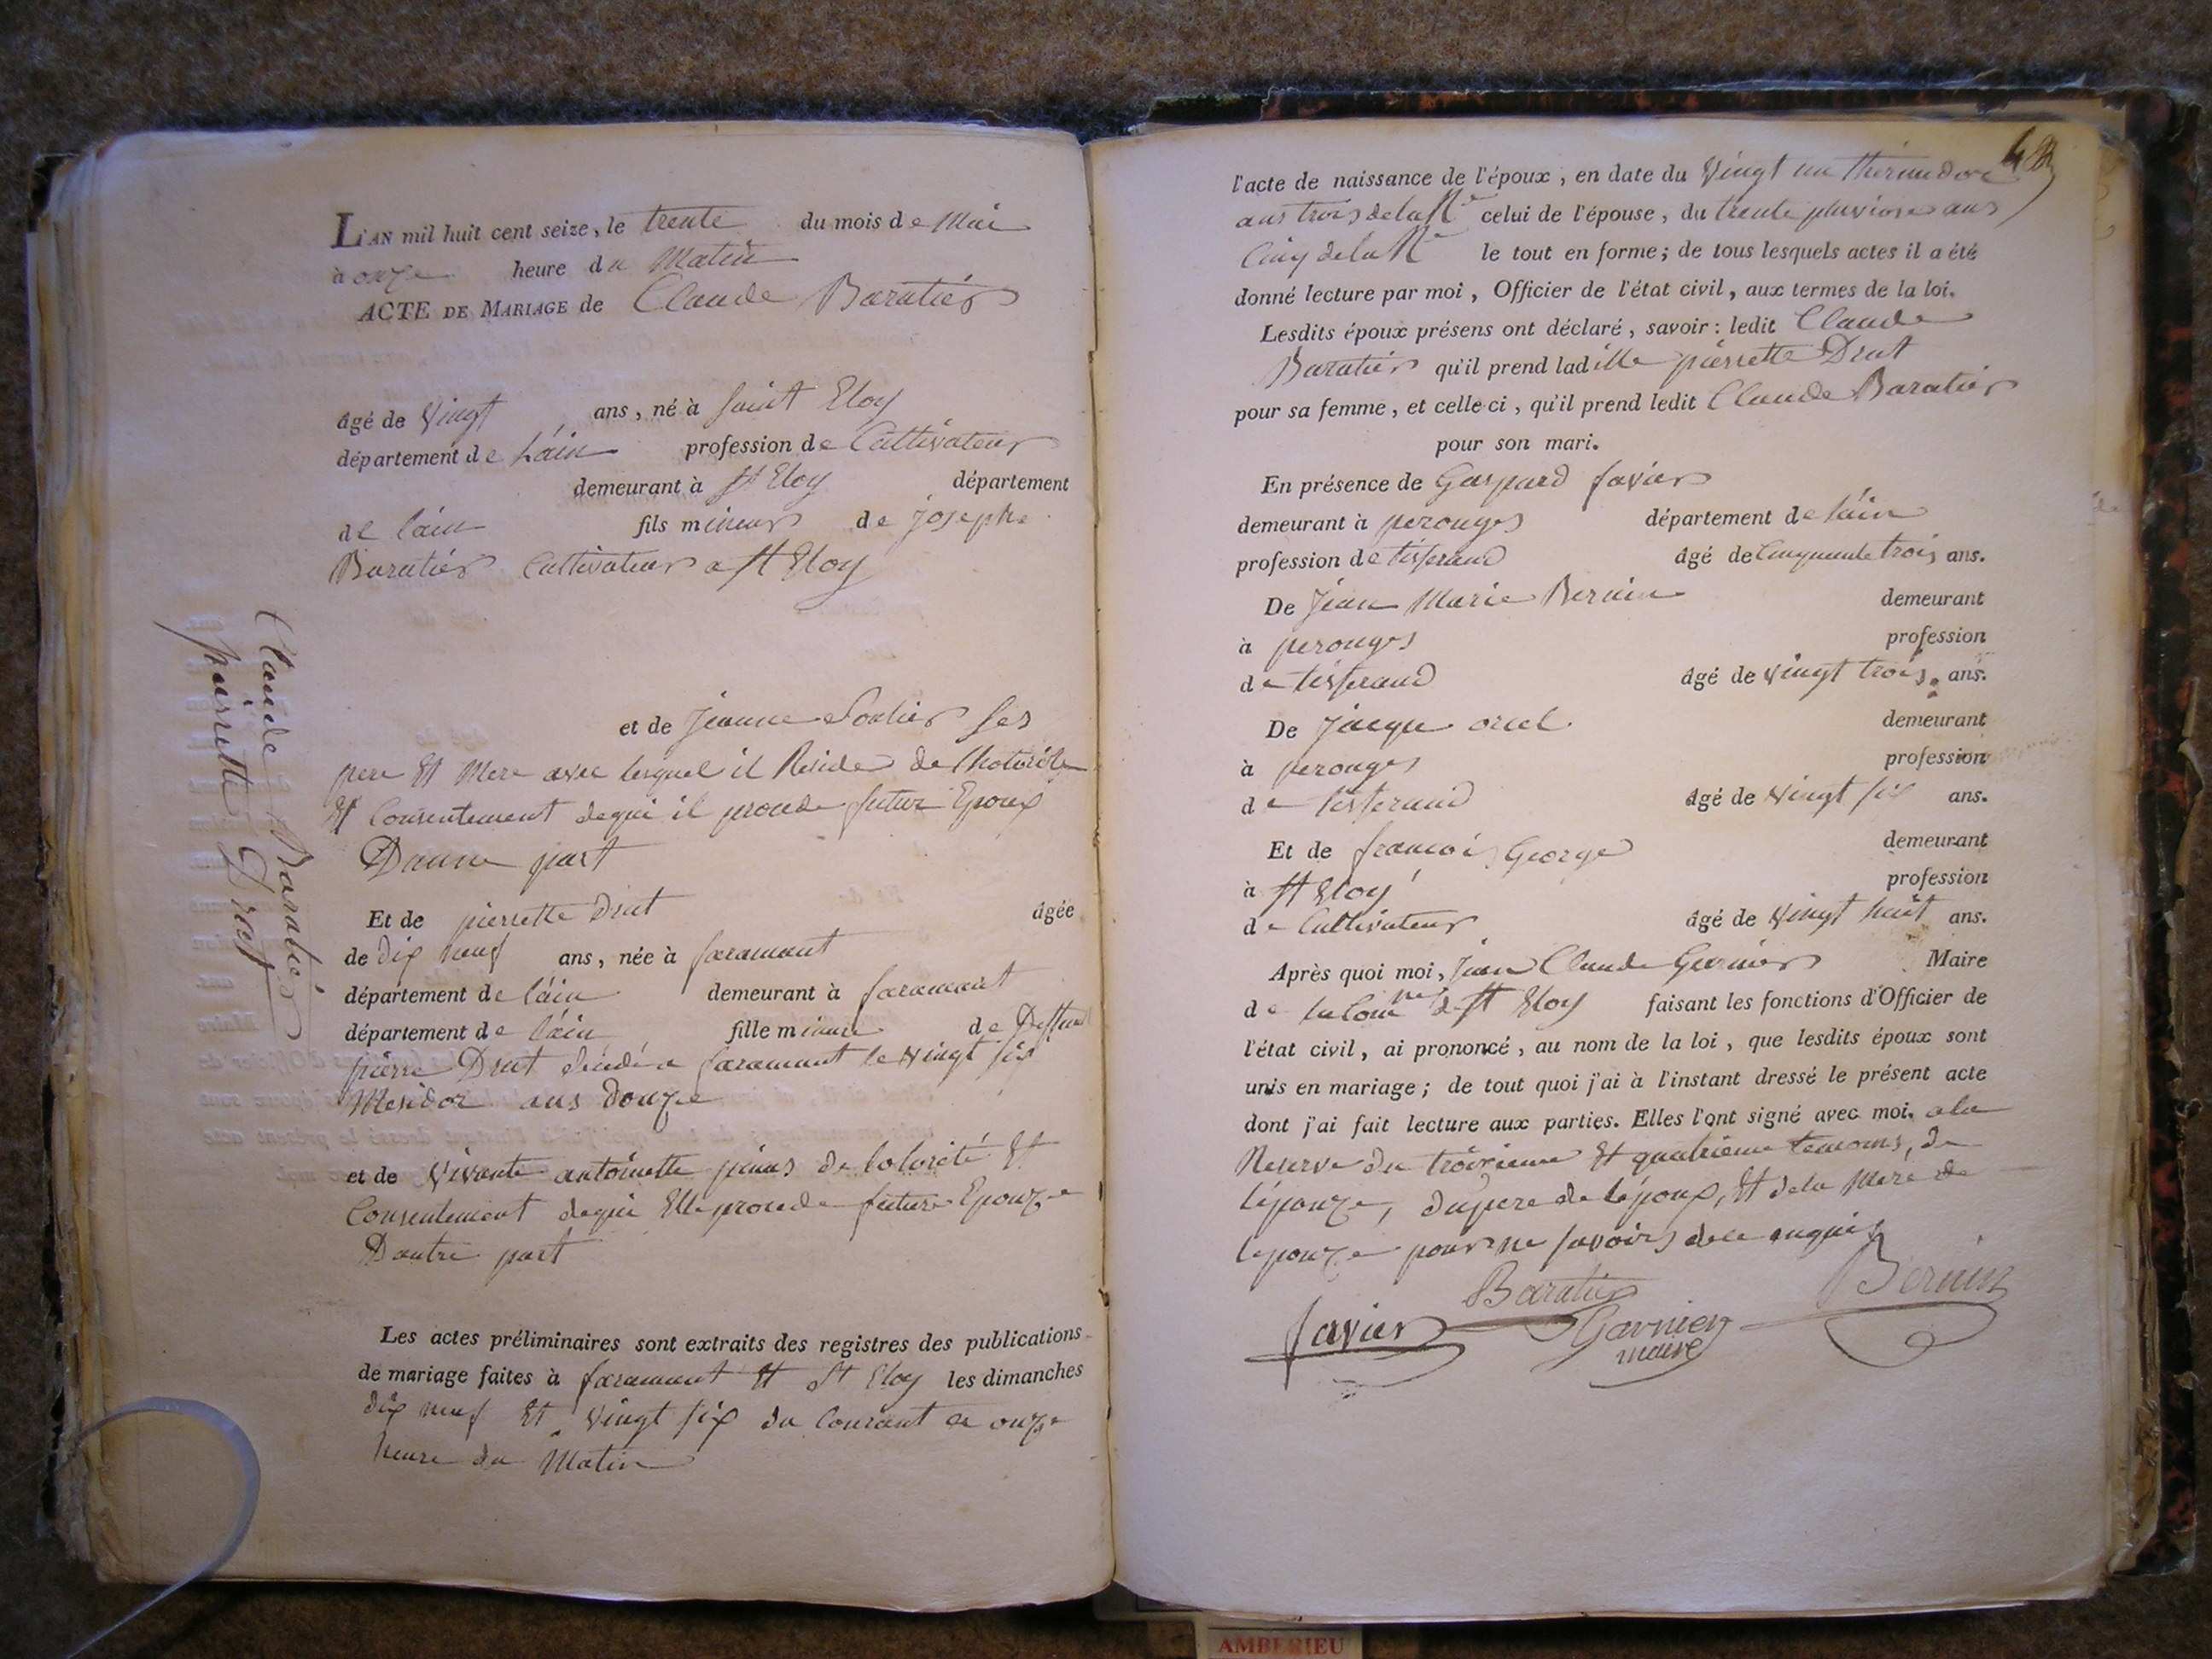 L'AN mil huit cent seize, le trente du mois de Mai
à onze heure du Matin
ACTE DE MARIAGE de Claude Baratier
âgé de Vingt ans, né à Saint Eloy
département de Láin profession de Cultivateur
demeurant à St Eloy département
de láin fils mineur de Josephe
Baratier Cultivateur a St Eloy
et de Jeanne ses
pere Et Mere avec lesquel il Reside de
Et Consentement dequi il procede futur Epoux
Daune part
Et de pierrette Drut âgée
de dix neuf ans, née à faramant
département de láin demeurant à faramant
département de láin fille mineure de
pierre Drut décédé a faramant le vingt six
Mesidor ans douze
et de Vivante antoinette de lotorité Et
Consentement dequi Elle procede future Epouze
Dautre part
Les actes préliminaires sont extraits des registres des publications
de mariage faites à faramant Et St Eloy les dimanches
dix neuf Et Vingt six du Courant a onze
heure du Matin
Claude Baratier
pierrette Drut
l'acte de naissance de l'époux, en date du Vingt un thermidore
ans trois de la Re celui de l'épouse, du trente pluviose ans
Cinq de la Re le tout en forme; de tous lesquels actes il a été
donné lecture par moi, Officier de l'état civil, aux termes de la loi.
Lesdits époux présens ont déclaré, savoir: ledit Claude
Baratier qu'il prend ladille pierrette Drut
pour sa femme, et celle ci, qu'il prend ledit Claude Baratier
pour son mari.
En présence de Gaspard favier
demeurant à perouges département de láin
profession de tisserand âgé de Cinquante trois ans.
De Jean Marie Bernin demeurant
à perouges profession
de tisserand âgé de vingt trois ans.
De Jacque orcel demeurant
à perouges profession
de tisserand âgé de vingt six ans.
Et de francoi George demeurant
à St Eloy profession
de Cultivateur âgé de Vingt huit ans.
Après quoi moi, Jean Claude Garnier Maire
de la Comne de St Eloy faisant les fonctions d'Officier de
l'état civil, ai prononcé, au nom de la loi, que lesdits époux sont
unis en mariage; de tout quoi j'ai à l'instant dressé le présent acte
dont j'ai fait lecture aux parties. Elles l'ont signé avec moi. a la
Reserve du troisieme Et quatrieme temoins, de
lépouze, dupere de lépoux, Et dela Mere de
lepouze pour ne savoir dece enquis
Baratier Bernin
favier Garnier
maire
AMBERIEU